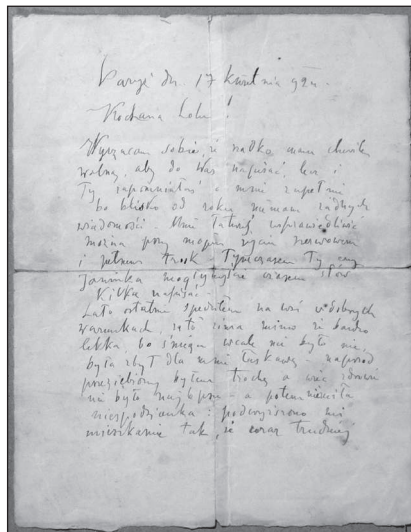 Paryż dn. 17 kwietnia 924.
Kochana Lolu!
Wyrzucam sobie, że rzadko mam chwilę
wolną, aby do Was napisać, lecz i
Ty zapomniałaś o mnie zupełnie
bo blisko od roku niemam żadnych
wiadomości.
można przy mojem życiu nerwowem
i pełnem trosk – Tymczasem Ty czy
Janinka mogłybyście czasem słów
kilka napisać.
Lato ostatnie spędziłem na wsi w dobrych
warunkach, zato zima mimo że bardzo
lekka bo śniegu wcale nie było nie
była zbyt dla mnie łaskawą – naprzód
przeziębiony byłem trochę a więc zdrowie
nie było najlepsze – a potem
niespodzianka: podwyższono mi
mieszkanie tak, że coraz trudniej